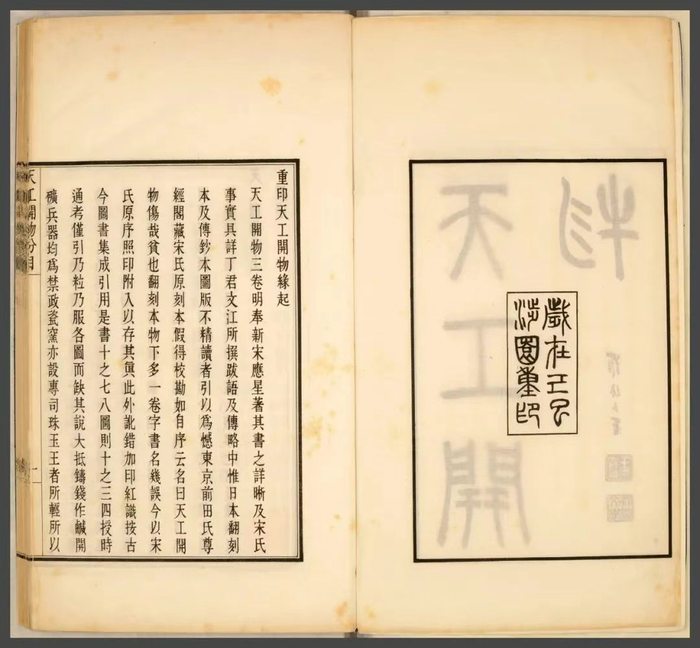 天工開
物
歲在己巳
涉園重印
重印天工開物緣起
天工開物三卷明奉新宋應星著其書之詳晰及宋氏
事實具詳丁君文江所撰跋語及傳略中惟日本翻刻
本及傳鈔本圖版不精讀者引以爲憾東京前田氏尊
經閣藏宋氏原刻本假得校勘如自序云名曰天工開
物傷哉貧也翻刻本物下多一卷字書名幾誤今以宋
氏原序照印附入以存其眞此外訛錯加印紅識按古
今圖書集成引用是書十之七八圖則十之三四授時
通考僅引乃粒乃服各圖而缺其說大抵鑄錢作鹹開
礦兵器均爲禁政瓷窯亦設專司珠玉王者所輕所以
天工開物
一